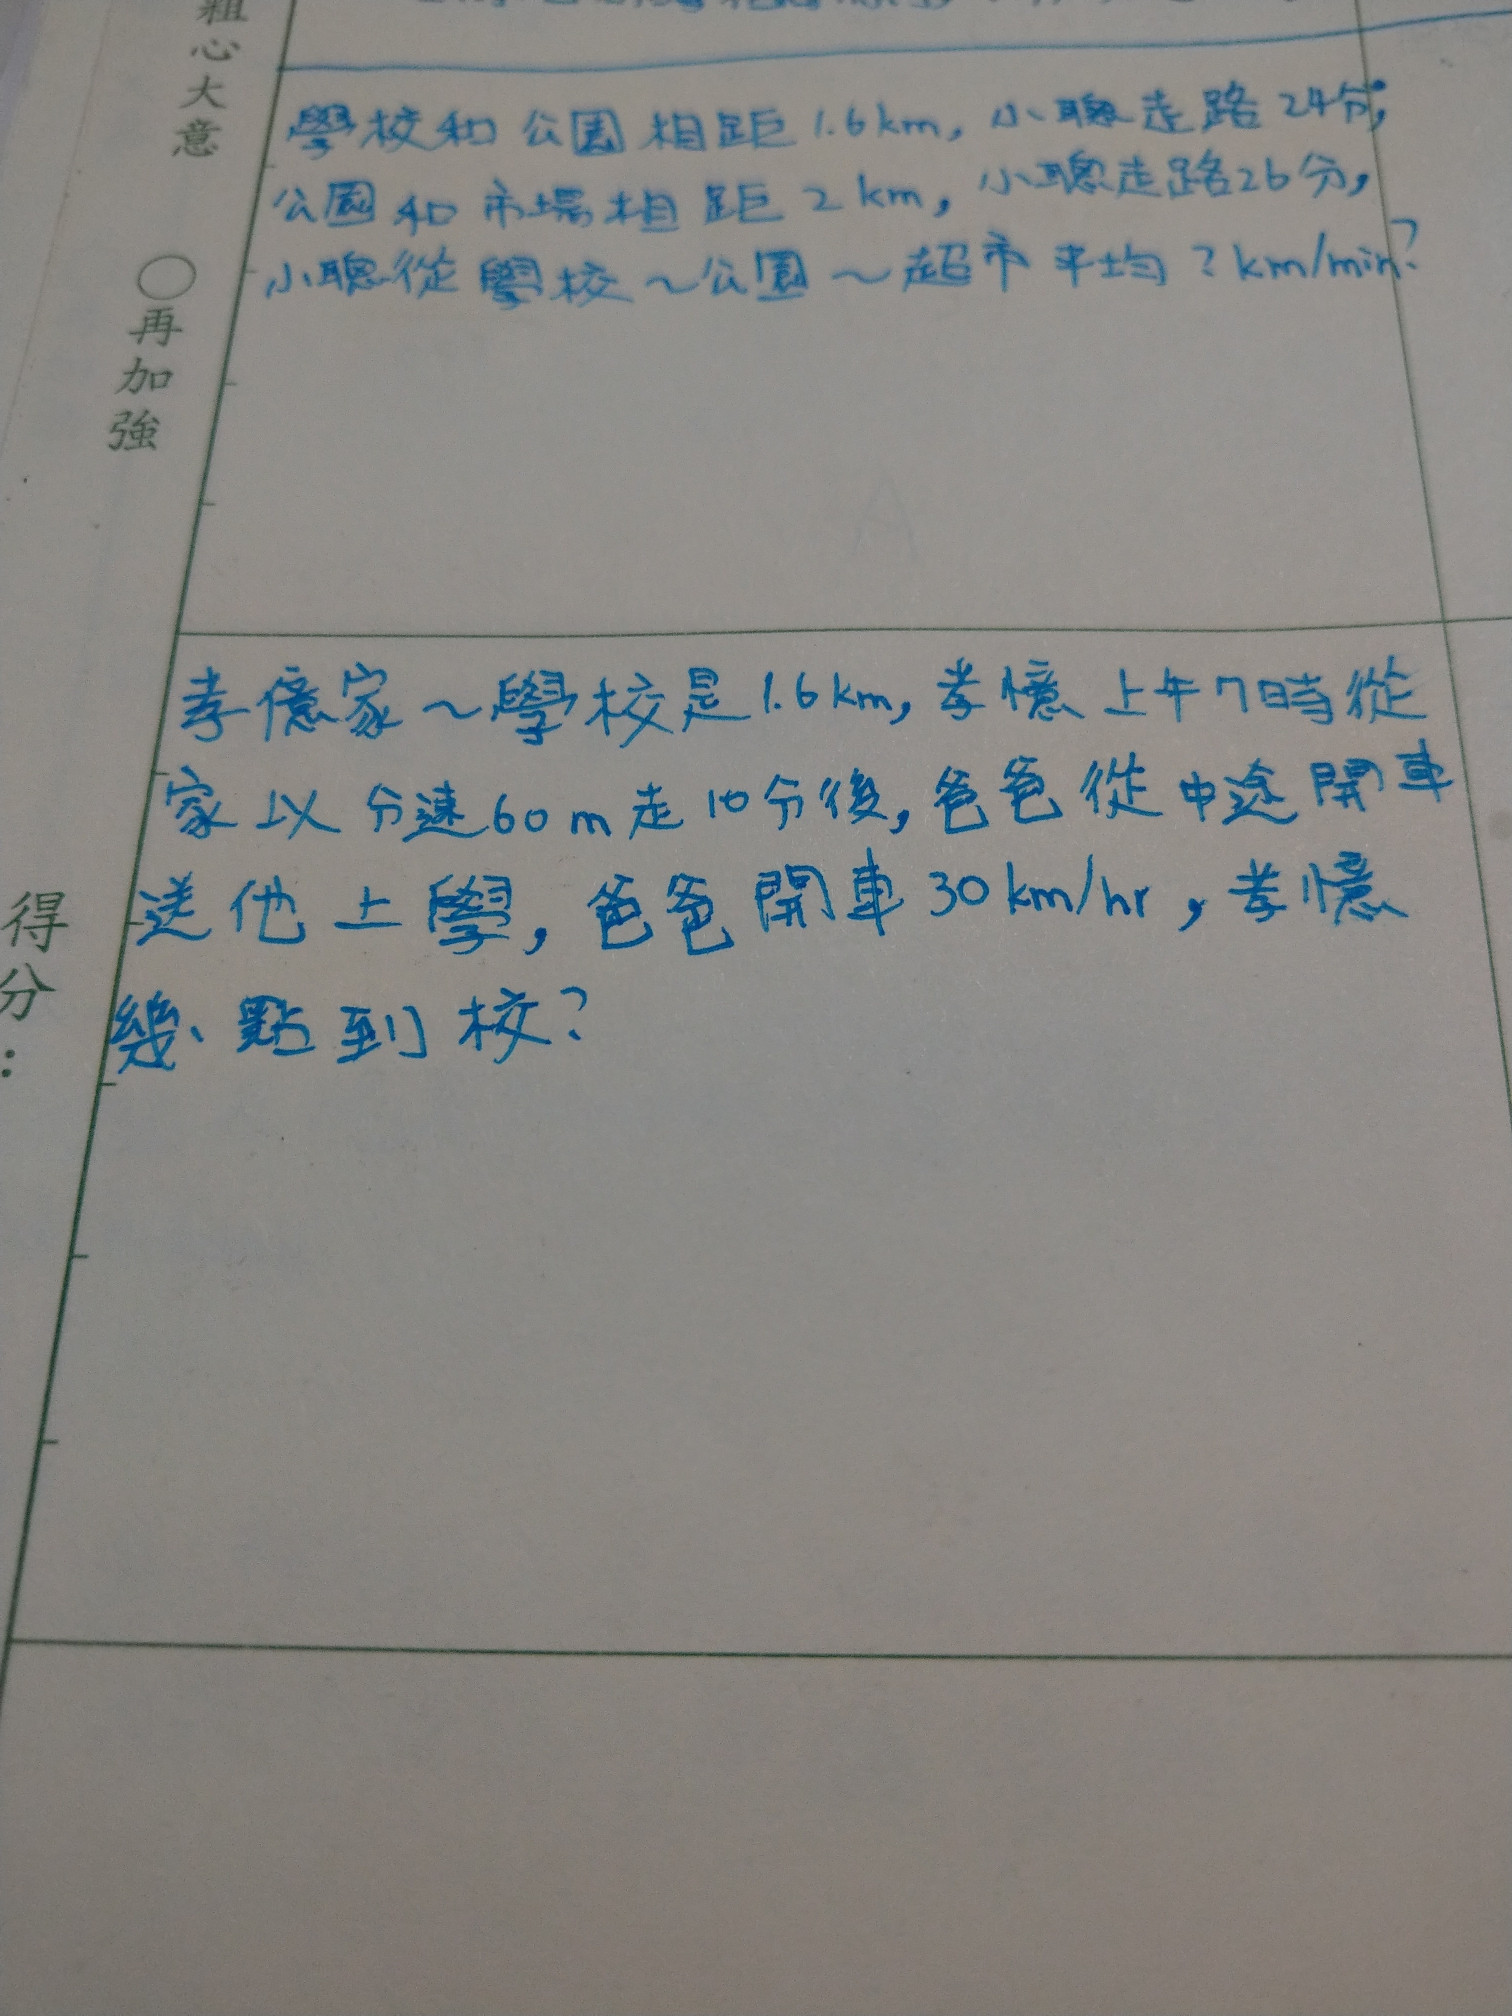 粗心大意
○再加強
得分：
學校和公園相距1.6km，小聰走路24分；
公園和市場相距2km，小聰走路26分，
小聰從學校～公園～超市平均？km/min？
孝億家～學校是1.6km，孝憶上午7時從
家以分速60m走10分後，爸爸從中途開車
送他上學，爸爸開車30km/hr，孝憶
幾點到校？